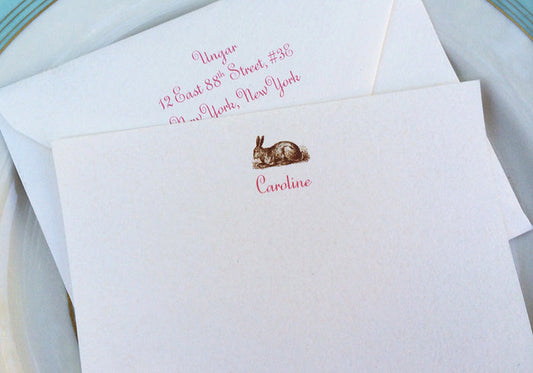 Ungar
12 East 88th Street, #3E
New York, New York
Caroline